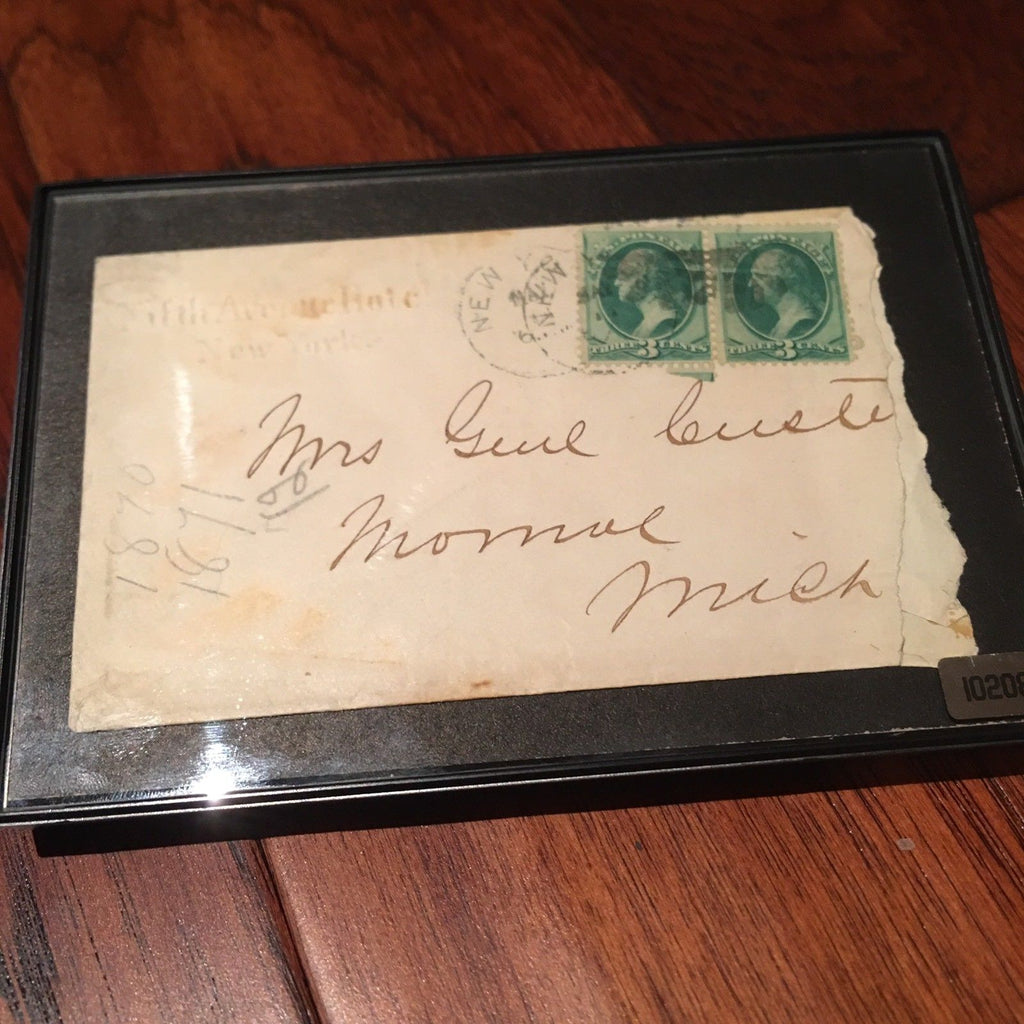 Fifth Avenue Hotel
New York
NEW
NEW
THREE 3 CENTS
THREE 3 CENTS
Mrs Genl Custe
Monroe
Mich
1870
1871
10208